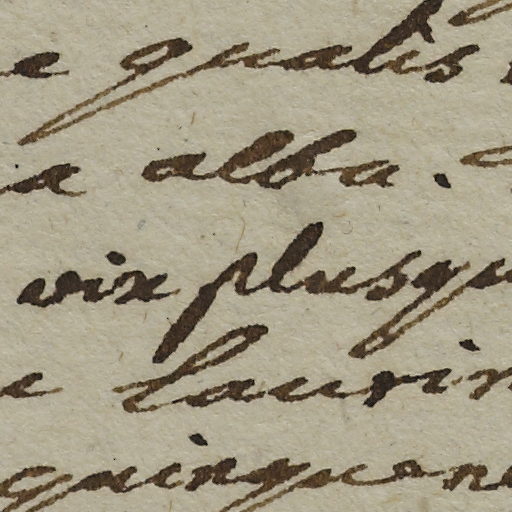 e qualis
a alba.
vix plusqu
e laurin
quinquene